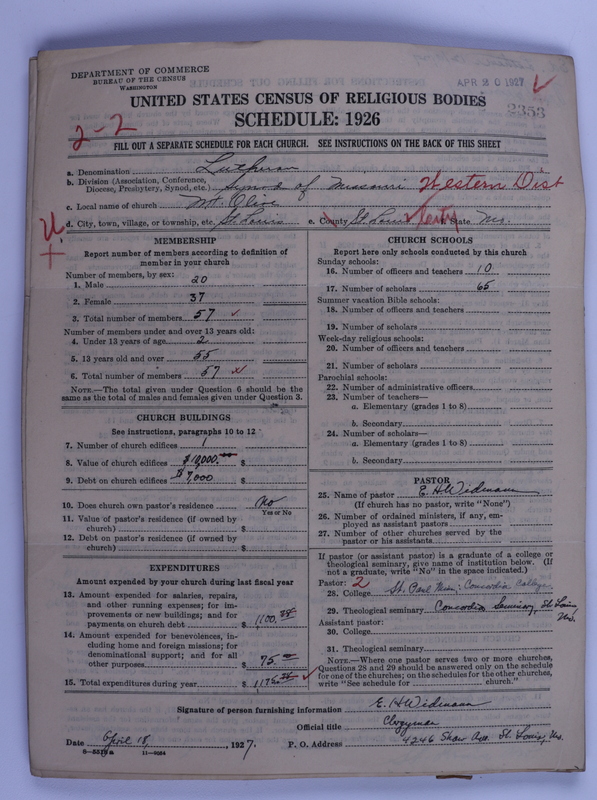 DEPARTMENT OF COMMERCE
BUREAU OF THE CENSUS
WASHINGTON
APR 20 1927
2353
UNITED STATES CENSUS OF RELIGIOUS BODIES
SCHEDULE: 1926
2-2
FILL OUT A SEPARATE SCHEDULE FOR EACH CHURCH. SEE INSTRUCTIONS ON THE BACK OF THIS SHEET
a. Denomination Lutheran
b. Division (Association, Conference, Diocese, Presbytery, Synod, etc.) Synod of Missouri Western Dist
c. Local name of church Mt. Olive
d. City, town, village, or township, etc. St. Louis e. County St. Louis f. State Mo.
MEMBERSHIP
Report number of members according to definition of
member in your church
Number of members, by sex:
1. Male 20
2. Female 37
3. Total number of members 57
Number of members under and over 13 years old:
4. Under 13 years of age 2
5. 13 years old and over 55
6. Total number of members 57
NOTE.—The total given under Question 6 should be the
same as the total of males and females given under Question 3.
CHURCH BUILDINGS
See instructions, paragraphs 10 to 12
7. Number of church edifices 1
8. Value of church edifices $10,000. $
9. Debt on church edifices $7,000 $
10. Does church own pastor's residence? No
Yes or No
11. Value of pastor's residence (if owned by
church) $
12. Debt on pastor's residence (if owned by
church) $
EXPENDITURES
Amount expended by your church during last fiscal year
13. Amount expended for salaries, repairs,
and other running expenses; for im-
provements or new buildings; and for
payments on church debt $ 1,100.
14. Amount expended for benevolences, in-
cluding home and foreign missions; for
denominational support; and for all
other purposes $ 75.
15. Total expenditures during year $
CHURCH SCHOOLS
Report here only schools conducted by this church
Sunday schools:
16. Number of officers and teachers 10
17. Number of scholars 65
Summer vacation Bible schools:
18. Number of officers and teachers
19. Number of scholars
Week-day religious schools:
20. Number of officers and teachers
21. Number of scholars
Parochial schools:
22. Number of administrative officers
23. Number of teachers—
a. Elementary (grades 1 to 8)
b. Secondary
24. Number of scholars—
a. Elementary (grades 1 to 8)
b. Secondary
PASTOR
25. Name of pastor E. H. Widmann
(If church has no pastor, write "None")
26. Number of ordained ministers, if any, em-
ployed as assistant pastors
27. Number of other churches served by the
pastor or his assistants
If pastor (or assistant pastor) is a graduate of a college or
theological seminary, give name of institution below. (If
not a graduate, write "No" in the space indicated.)
Pastor: 2
28. College St. Paul Minn: Concordia College
29. Theological seminary Concordia Seminary, St. Louis,
Mo.
Assistant pastor:
30. College
31. Theological seminary
NOTE.—Where one pastor serves two or more churches,
Questions 28 and 29 should be answered only on the schedule
for one of the churches; on the schedules for the other churches,
write "See schedule for church."
Signature of person furnishing information E. H. Widmann
Official title Clergyman
Date April 18, 1927. P. O. Address 4246 Shaw Ave. St. Louis, Mo.
8—5516a 11—9084